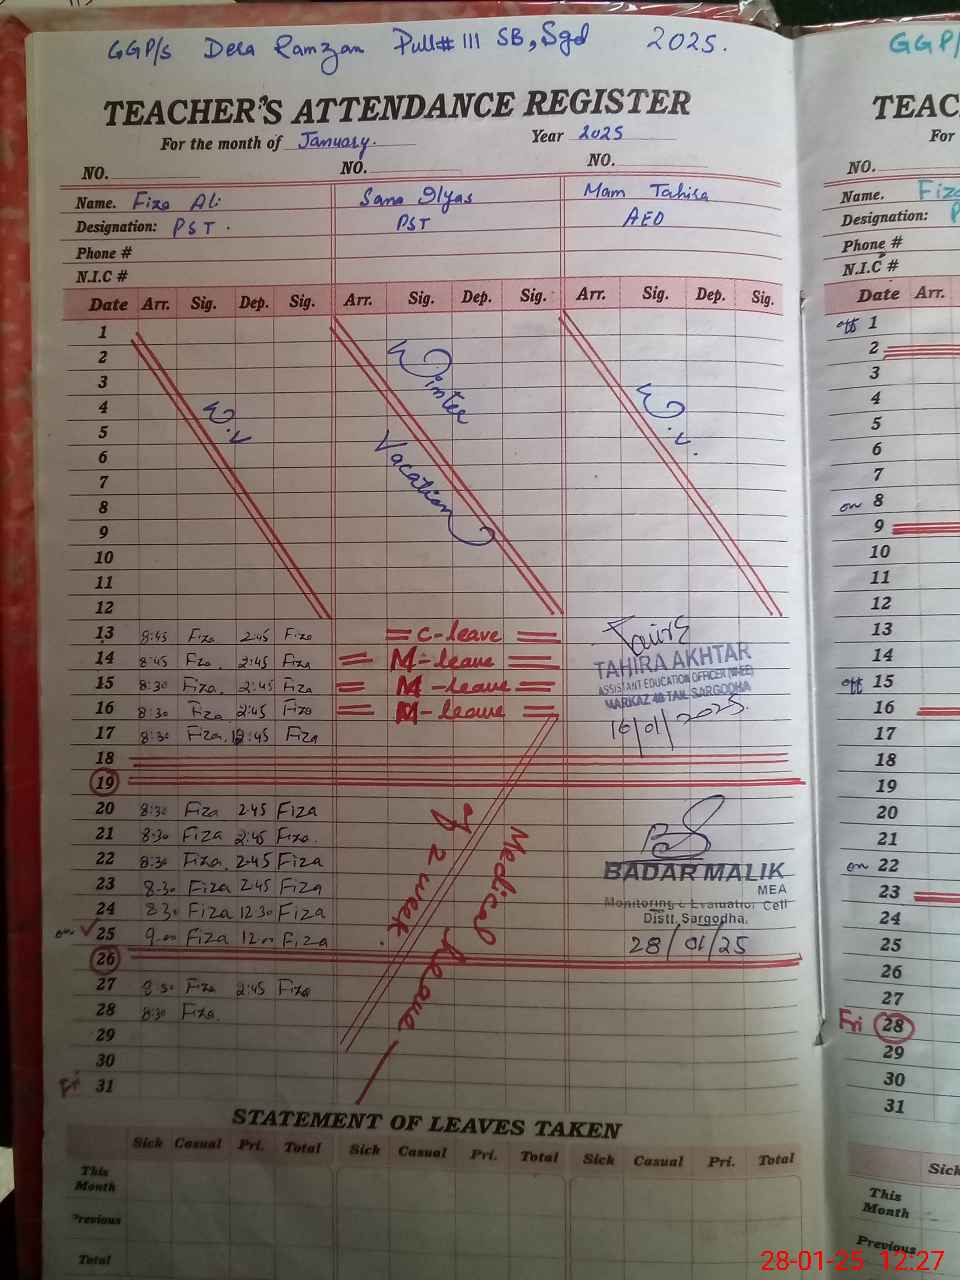 GGP/S Dera Ramzan Pull# 111 SB, Sgd 2025.
GGP/
TEACHER'S ATTENDANCE REGISTER
For the month of January. Year 2025
NO. NO. NO.
Name. Fiza Ali Sana Ilyas Mam Tahira
Designation: PST. PST AEO
Phone #
N.I.C #
Date Arr. Sig. Dep. Sig. Arr. Sig. Dep. Sig. Arr. Sig. Dep. Sig.
1
2
3
4
5
6
7
8
9
10
11
12
W.V
Winter Vacation
W.V.
13 8:45 Fiza 2:45 Fiza C-leave
14 8:45 Fiza. 2:45 Fiza M-leave
15 8:30 Fiza. 2:45 Fiza M-leave
16 8:30 Fiza 2:45 Fiza M-leave
17 8:30 Fiza. 12:45 Fiza
18
19
20 8:30 Fiza 2:45 Fiza
21 8:30 Fiza 2:45 Fiza.
22 8:30 Fiza. 2:45 Fiza
23 8:30 Fiza 2:45 Fiza
24 8:30 Fiza 12:30 Fiza
on 25 9:00 Fiza 12:00 Fiza
26
27 8:30 Fiza 2:45 Fiza
28 8:30 Fiza.
29
30
Fri 31
Medical leave
of 2 week
TAHIRA AKHTAR
ASSISTANT EDUCATION OFFICER (W-EE)
MARKAZ 46 TAIL SARGODHA
16/01/2025.
BADAR MALIK
MEA
Monitoring & Evaluation Cell
Distt. Sargodha.
28/01/25
STATEMENT OF LEAVES TAKEN
Sick Casual Pri. Total Sick Casual Pri. Total Sick Casual Pri. Total
This Month
Previous
Total
TEAC
For
NO.
Name. Fiza
Designation: P
Phone #
N.I.C #
Date Arr.
off 1
2
3
4
5
6
7
on 8
9
10
11
12
13
14
off 15
16
17
18
19
20
21
on 22
23
24
25
26
27
Fri 28
29
30
31
Sick
This Month
Previous
28-01-25 12:27